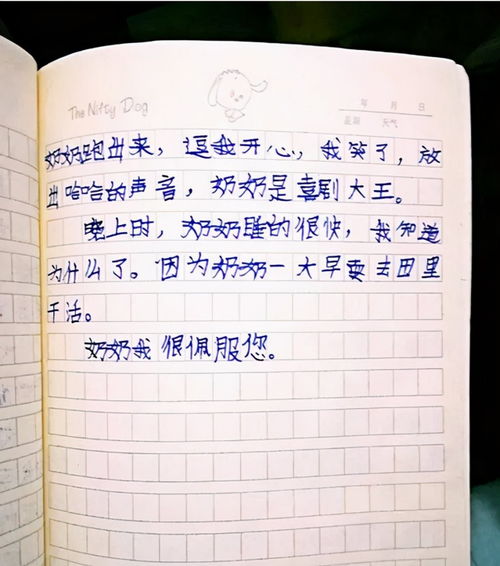 The Nifty Dog
年 月 日
星期 天气
奶奶跑出来，逗我开心，我笑了，放
出哈哈的声音，奶奶是喜剧大王。
晚上时，奶奶睡的很快，我知道
为什么了。因为奶奶一大早要去田里
干活。
奶奶我很佩服您。